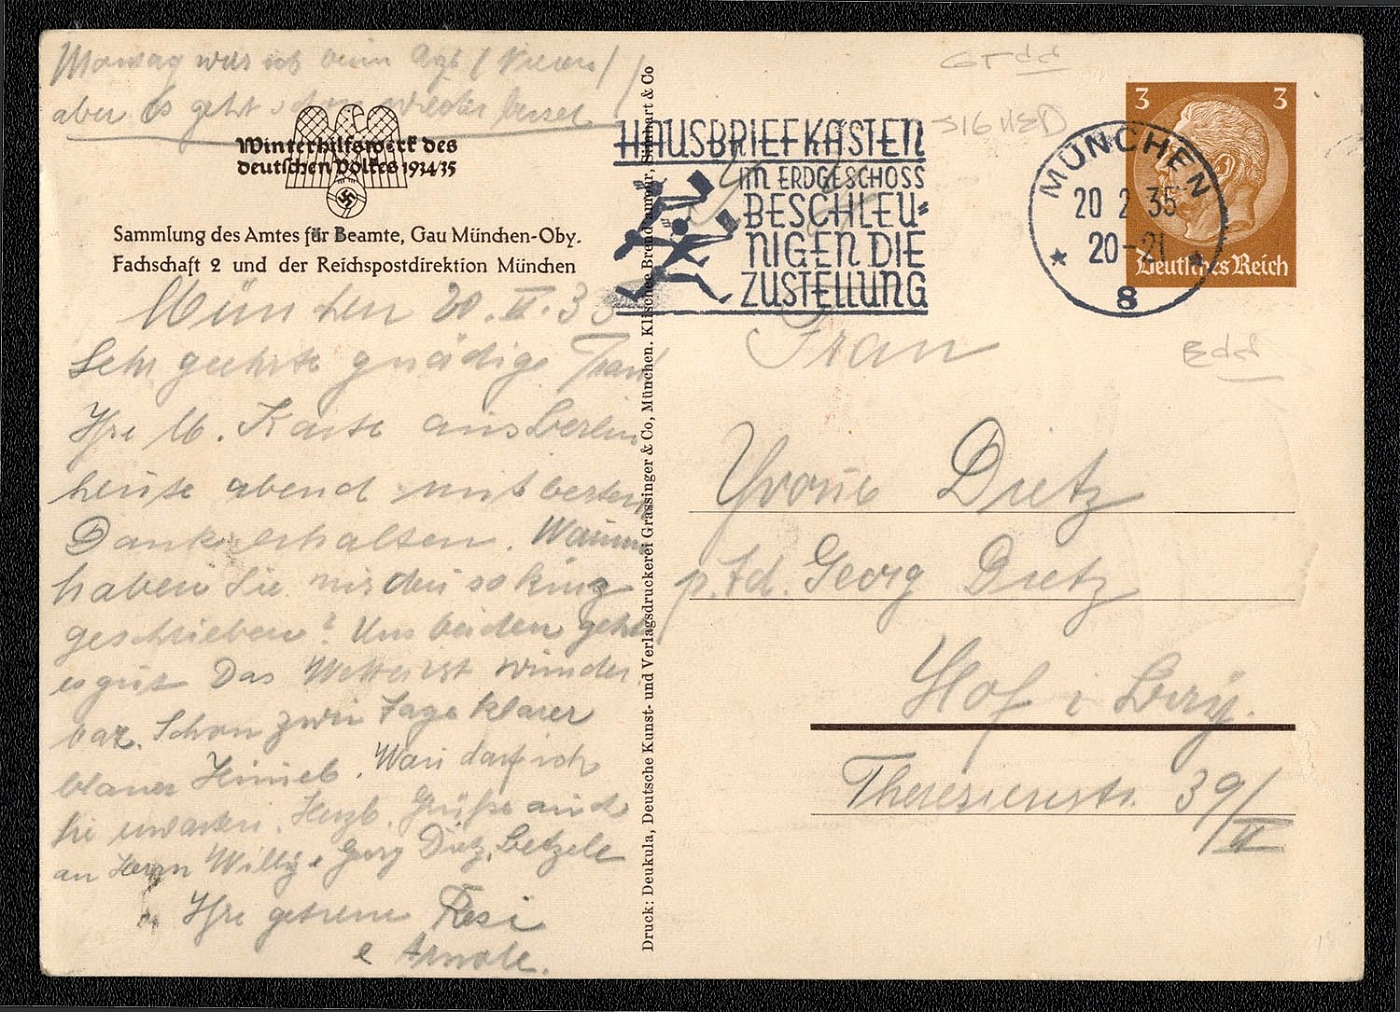 Montag war ich beim Arzt
aber es geht schon wieder besser
Winterhilfswerk des
deutschen Volkes 1934/35
Sammlung des Amtes für Beamte, Gau München-Oby.
Fachschaft 2 und der Reichspostdirektion München
München 20. II. 35
Sehr geehrte gnädige Frau
Ihre lb. Karte aus Berlin
heute abend mit besten
Dank erhalten. Warum
haben Sie mir den so
geschrieben? Uns beiden geht
es gut Das Wetter ist wunder
bar. Schon zwei Tage klarer
blauer Himmel. Wan darf ich
Sie erwarten. Herzl. Grüße auch
an Herrn Willy Georg Dietz,
Ihre getreue Resi
Druck: Deukula, Deutsche Kunst- und Verlagsdruckerei Grassinger & Co, München. Klischee Brend'amour, Simhart & Co
HAUSBRIEFKÄSTEN
IM ERDGESCHOSS
BESCHLEU-
NIGEN DIE
ZUSTELLUNG
SIGNED
MÜNCHEN
20 2 35
20-21
8
3 3
Deutsches Reich
Frau
Dietz
Georg Dietz
Hof i Bay.
Theresienstr. 39/II